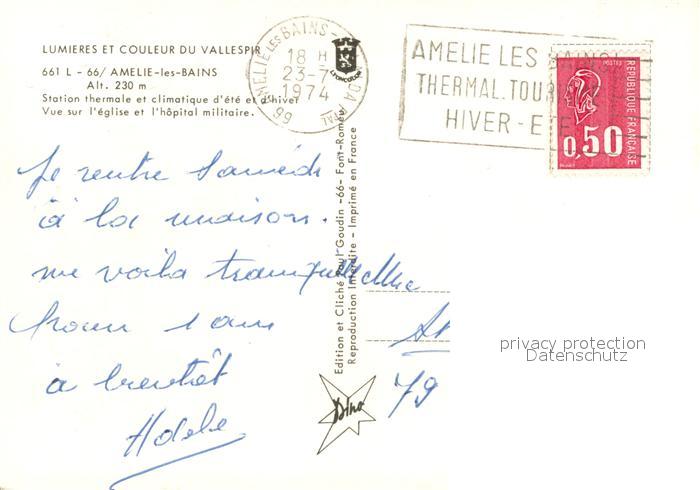 LUMIERES ET COULEUR DU VALLESPIR
661 L - 66/ AMELIE-les-BAINS
Alt. 230 m
Station thermale et climatique d'été et d'hiver
Vue sur l'église et l'hôpital militaire.
AMELIE LES BAINS
18 H
23-7
1974
66
AMELIE LES BAINS
THERMAL. TOUR
HIVER - ETE
POSTES
REPUBLIQUE FRANÇAISE
0,50
Je rentre Samedi
à la maison.
me voila tranquille
pour 1 an
à bientôt
Adele
Edition et Cliché Paul Goudin -66- Font-Romeu
Reproduction Interdite - Imprimé en France
Dino
Mme
79
privacy protection
Datenschutz